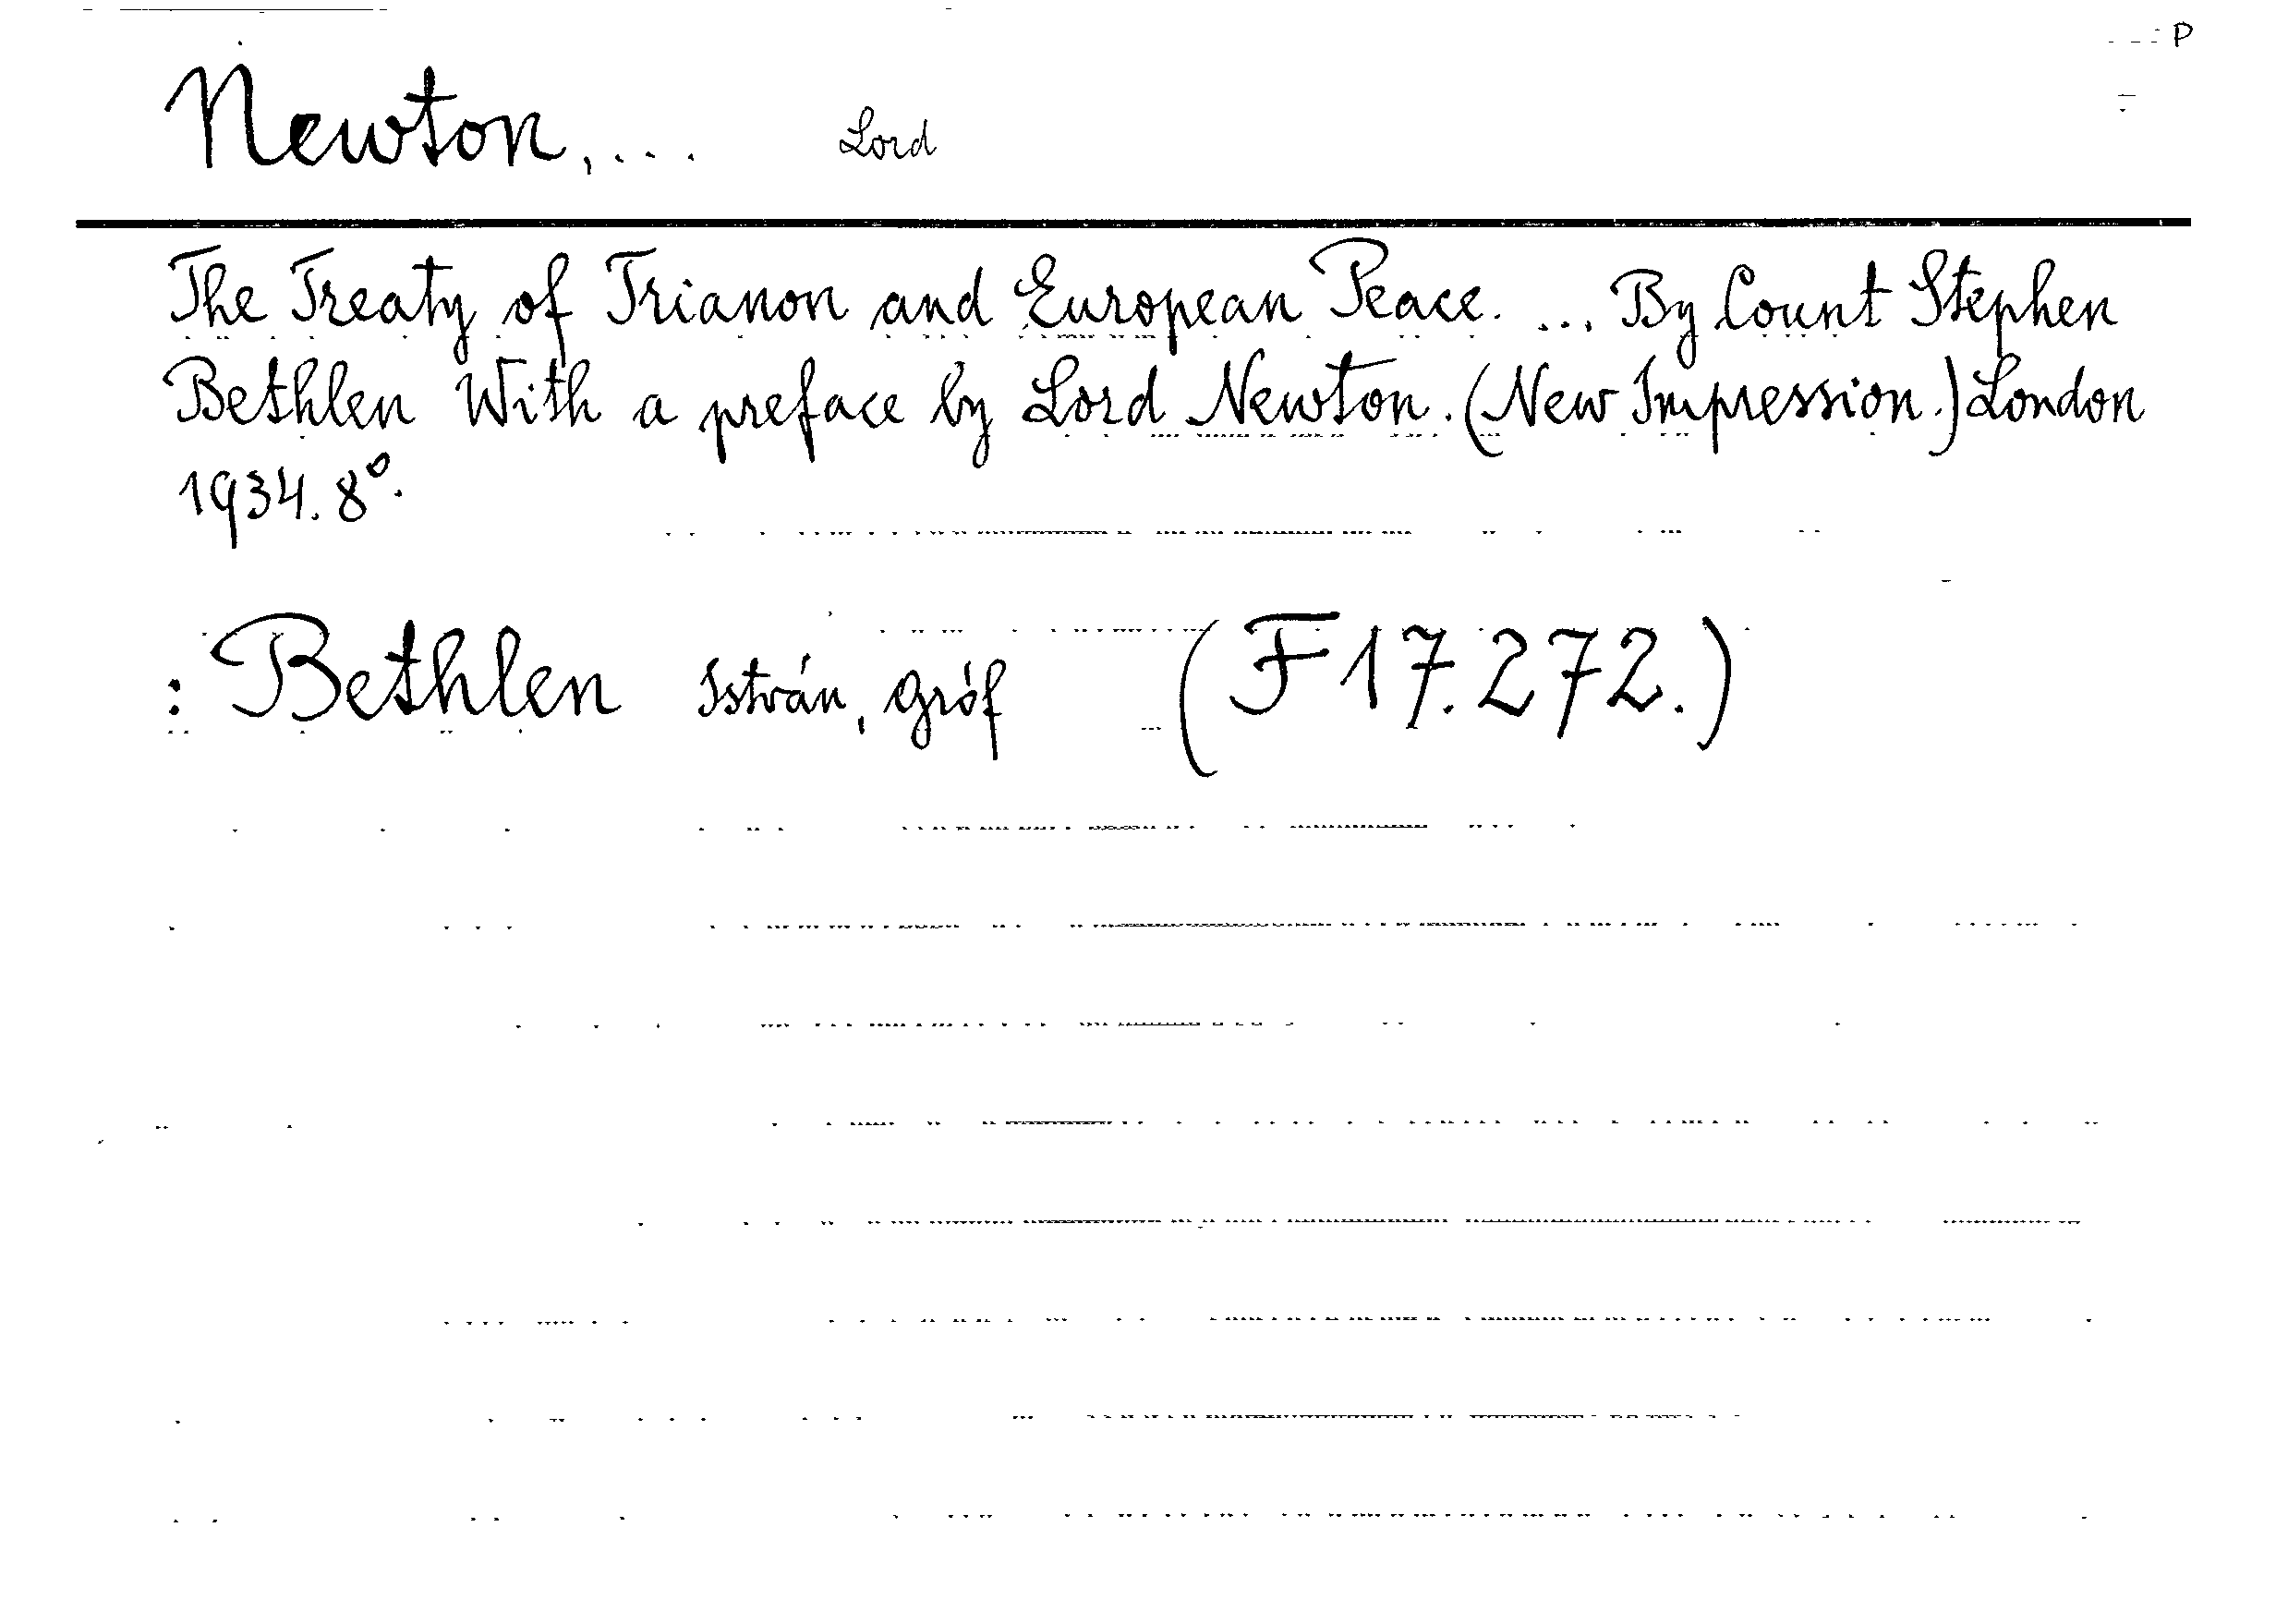 P
Newton, ... Lord
The Treaty of Trianon and European Peace. ... By Count Stephen
Bethlen With a preface by Lord Newton. (New Impression.) London
1934. 8°.
: Bethlen István, gróf (F 17.272.)